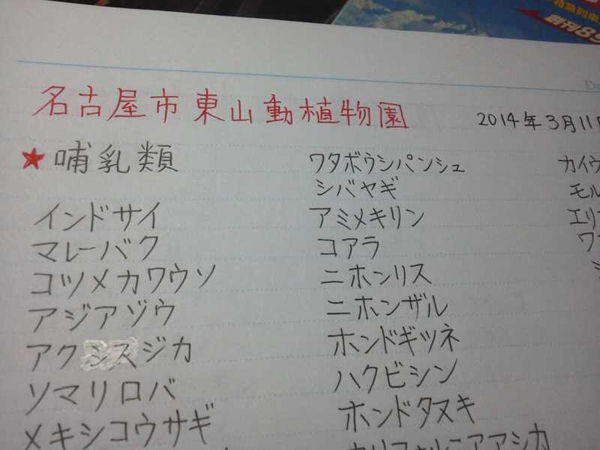 名古屋市東山動植物園
2014年3月11日
★哺乳類
インドサイ
マレーバク
コツメカワウソ
アジアゾウ
アクシスジカ
ソマリロバ
メキシコウサギ
ワタボウシパンシュ
シバヤギ
アミメキリン
コアラ
ニホンリス
ニホンザル
ホンドギツネ
ハクビシン
ホンドタヌキ
カリフォルニアアシカ
カイウ
モル
エリ
ワ